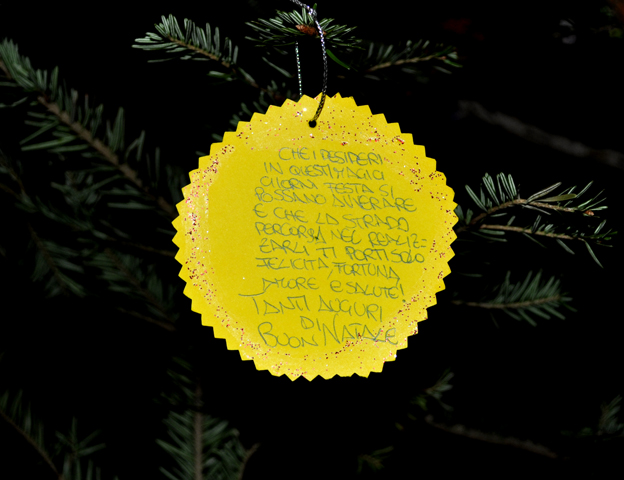 CHE I DESIDERI
IN QUESTI MAGICI
GIORNI FESTA SI
POSSANO AVVERARE
E CHE LA STRADA
PERCORSA NEL REALIZ-
ZARLI TI PORTI SOLO
FELICITÀ, FORTUNA,
AMORE E SALUTE!
TANTI AUGURI
DI
BUON NATALE